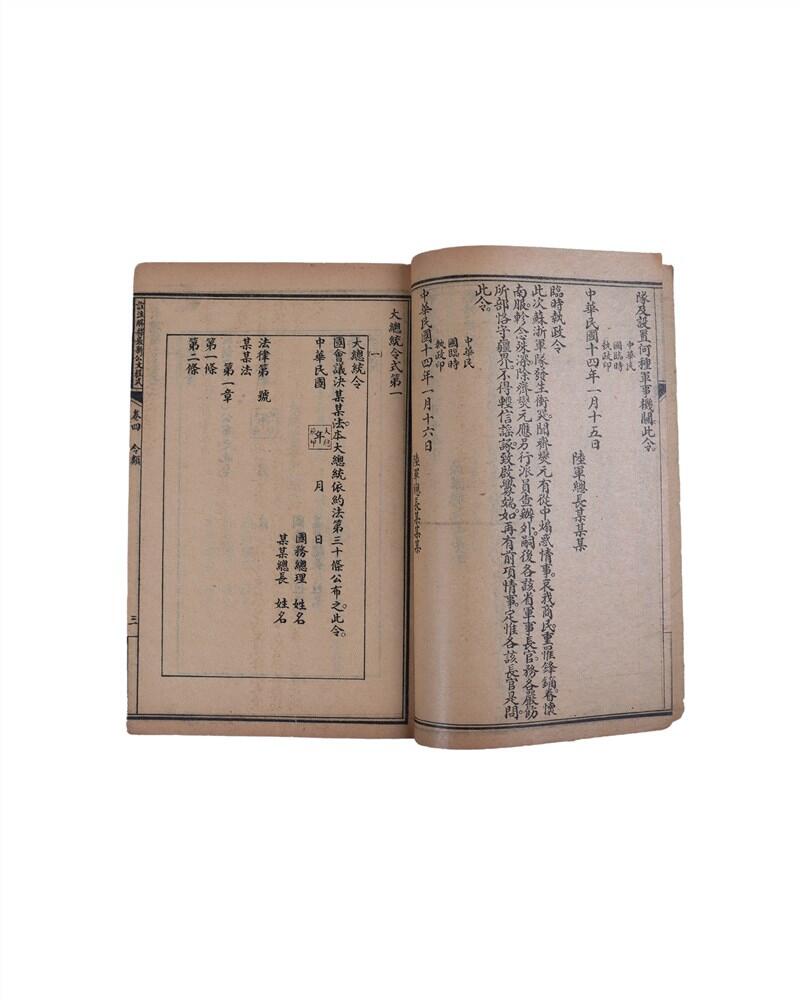 隊及設置何種軍事機關。此令。
中華民
國臨時
執政印
中華民國十四年一月十五日
陸軍總長某某某
臨時執政令
此次蘇浙軍隊發生衝突。聞齊燮元有從中煽惑情事。哀我商民。重罹鋒鏑。眷懷
南服。軫念殊深。除齊燮元應另行派員查辦外。嗣後各該省軍事長官。務各嚴飭
所部。恪守疆界。不得輕信謠諑。致啟釁端。如再有前項情事。定惟各該長官是問。
此令。
中華民
國臨時
執政印
中華民國十四年一月十六日
陸軍總長某某某
大總統令式第一
(一)
大總統令
國會議決某某法。本大總統依約法第三十條公布之。此令。
中華民國 年 月 日
國務總理 姓名
某某總長 姓名
法律第 號
某某法
第一章
第一條
第二條
卷四 令類
三